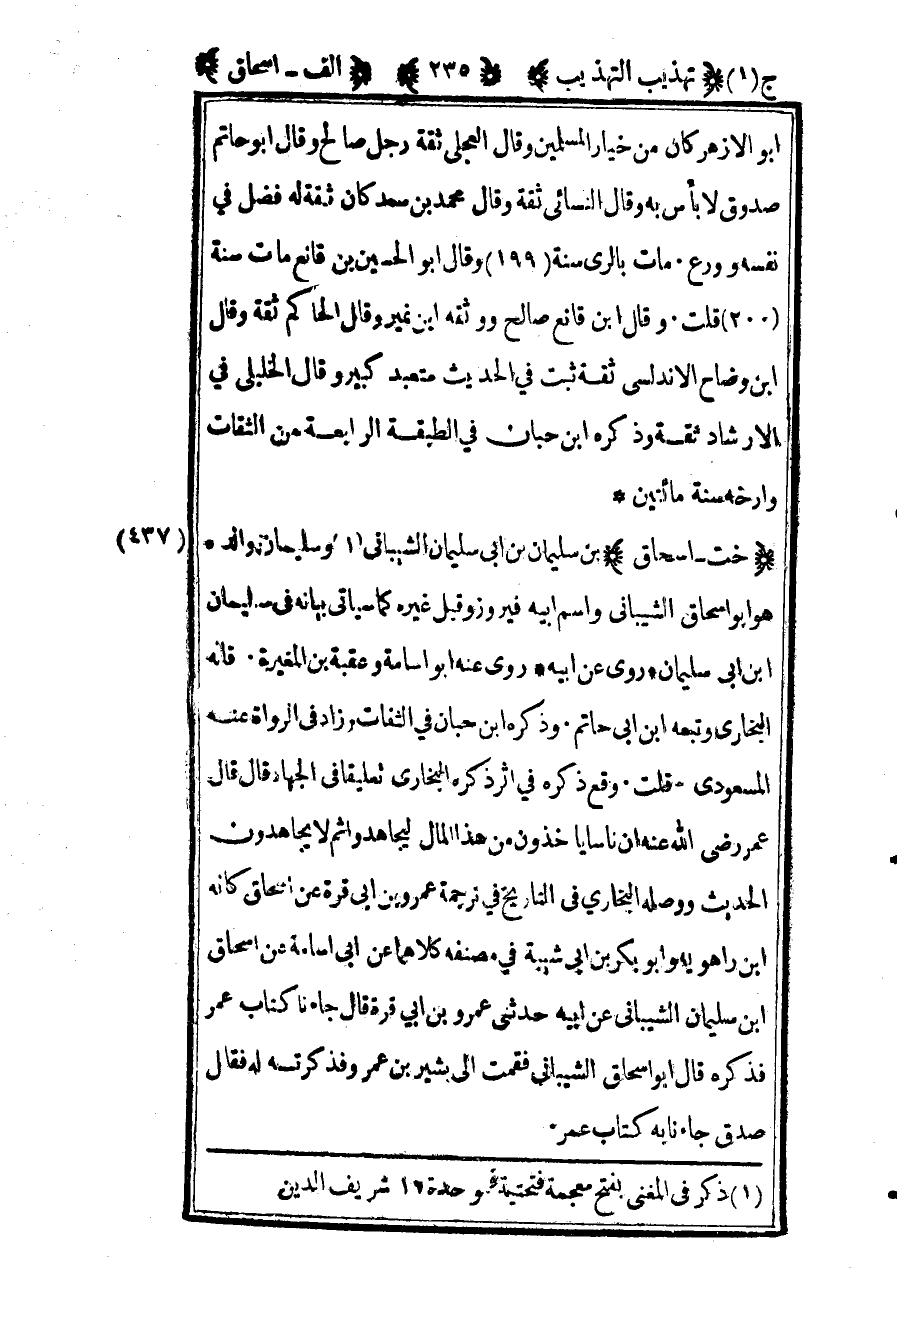 ج(١) ﴿ تهذيب التهذيب ﴾ ﴿ ٢٣٥ ﴾ ﴿ الف ـ اسحاق ﴾
ابو الازهر كان من خيار المسلمين وقال العجلى ثقة رجل صالح وقال ابو حاتم
صدوق لا بأس به وقال النسائى ثقة وقال محمد بن سعد كان ثقة له فضل في
نفسه و ورع · مات بالرى سنة (١٩٩) وقال ابو الحسين بن قانع مات سنة
(٢٠٠) قلت · و قال ابن قانع صالح وو ثقه ابن نمير وقال الحاكم ثقة وقال
ابن وضاح الاندلسى ثقة ثبت في الحديث متعبد كبير و قال الخليلى في
الارشاد ثقة وذكره ابن حبان في الطبقة الرابعة من الثقات
وارخه سنة مأتين *
﴿ خت ـ اسحاق ﴾ بن سليمان بن ابى سليمان الشيبانى (١) وسليمان والد * (٤٣٧)
هو ابو اسحاق الشيبانى واسم ابيه فيروز وقيل غيره كما سياتى بيانه فى سليمان
ابن ابى سليمان * روى عن ابيه * روى عنه ابو اسامة و عقبة بن المغيرة · قاله
البخارى وتبعه ابن ابى حاتم · وذكره ابن حبان في الثقات وزاد فى الرواة عنه
المسعودى - قلت · وقع ذكره في اثر ذكره البخارى تعليقا فى الجهاد قال قال
عمر رضى الله عنه ان ناسا يا خذون من هذا المال ليجاهدوا ثم لا يجاهدون
الحديث ووصله البخاري فى التاريخ في ترجمة عمرو بن ابى قرة عن اسحاق كانه
ابن راهويه وابو بكر بن ابى شيبة في مصنفه كلاهما عن ابى اسامة عن اسحاق
ابن سليمان الشيبانى عن ابيه حدثنى عمرو بن ابي قرة قال جاءنا كتاب عمر
فذكره قال ابو اسحاق الشيبانى فقمت الى بشير بن عمرو فذكرت له فقال
صدق جاءنا به كتاب عمر ·
(١) ذكر فى المغنى بفتح معجمة فتحتية فمو حدة ١٢ شريف الدين